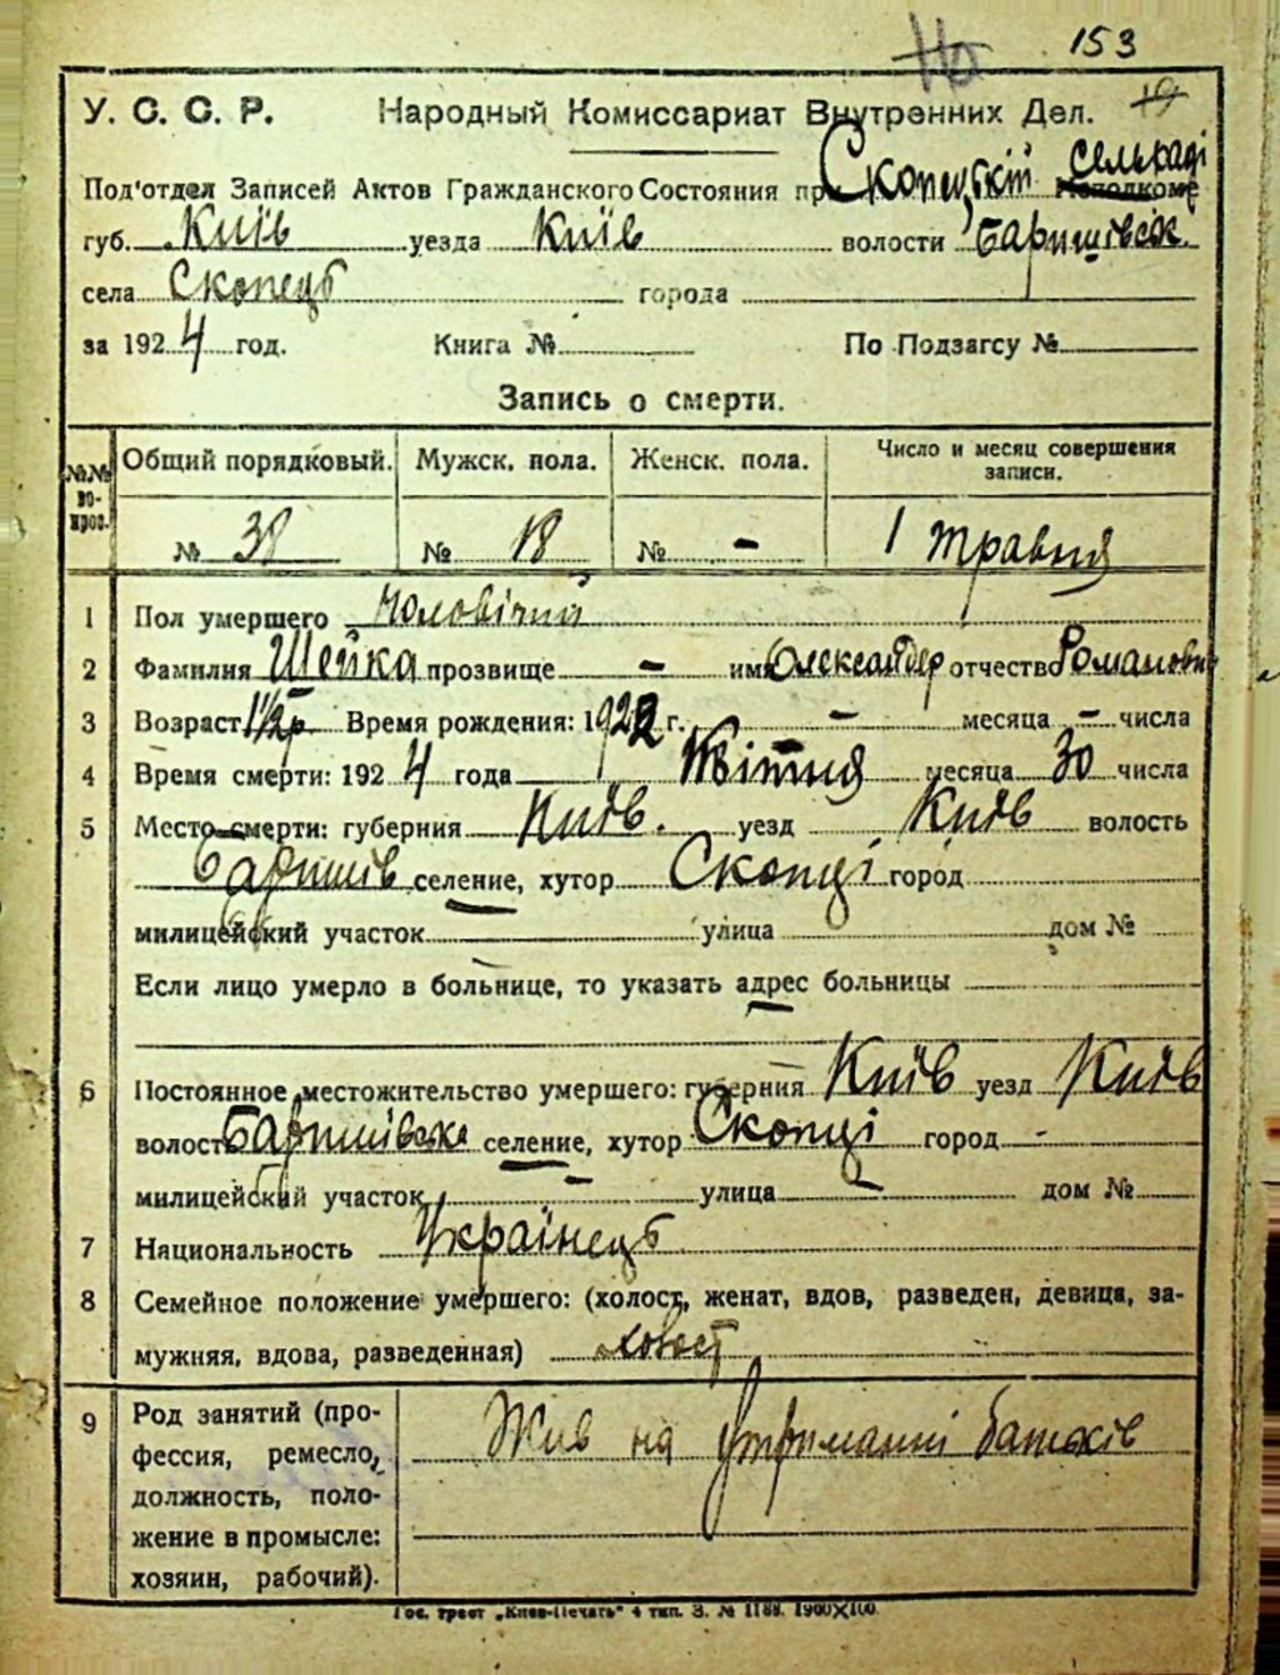 153
У. С. С. Р. Народный Комиссариат Внутренних Дел.
сельраді
Под'отдел Записей Актов Гражданского Состояния при Скопецькій Исполкоме
губ. Київ уезда Київ волости Баришівськ.
села Скопець города
за 1924 год. Книга № По Подзагсу №
Запись о смерти.
№№ вопрос. Общий порядковый. Мужск. пола. Женск. пола. Число и месяц совершения записи.
№ 38 № 18 № - 1 травня
1 Пол умершего Чоловічий
2 Фамилия Шейка прозвище - имя Олександер отчество Романович
3 Возраст 1 1/2 р. Время рождения: 1922 г. - месяца - числа
4 Время смерти: 1924 года Квітня месяца 30 числа
5 Место смерти: губерния Київ. уезд Київ волость
Баришів селение, хутор Скопці город
милицейский участок улица дом №
Если лицо умерло в больнице, то указать адрес больницы
6 Постоянное местожительство умершего: губерния Київ уезд Київ
волость Баришівська селение, хутор Скопці город -
милицейский участок - улица дом №
7 Национальность Українець
8 Семейное положение умершего: (холост, женат, вдов, разведен, девица, за-
мужняя, вдова, разведенная) холост
9 Род занятий (про- Жив на утриманні батьків
фессия, ремесло,
должность, поло-
жение в промысле:
хозяин, рабочий).
Гос. трест „Киев-Печать" 4 тип. З. № 1188. 1900×100